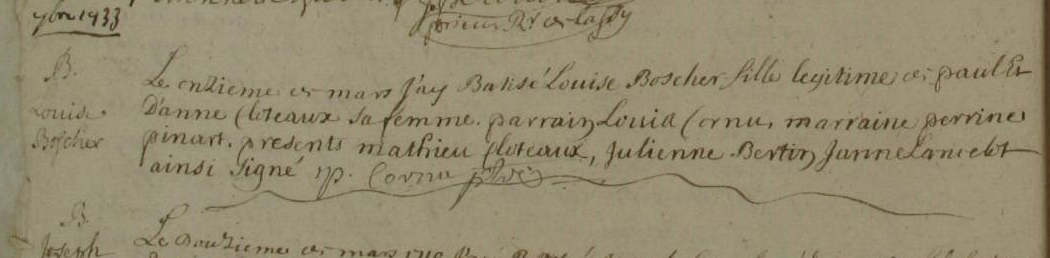 7bre 1933
prieur Rr de Lassy
B.
Louise
Boscher
Le onzieme de mars j'ay Batisé Louise Boscher fille legitime de paul Et
D'anne Cloteaux sa femme. parrain Louis Cornu, marraine perrine
pinart. presents mathieu Cloteaux, Julienne Bertin Janne Lancelot
ainsi signé rp. Cornu pbre
B.
Joseph
Le Douzieme de mars